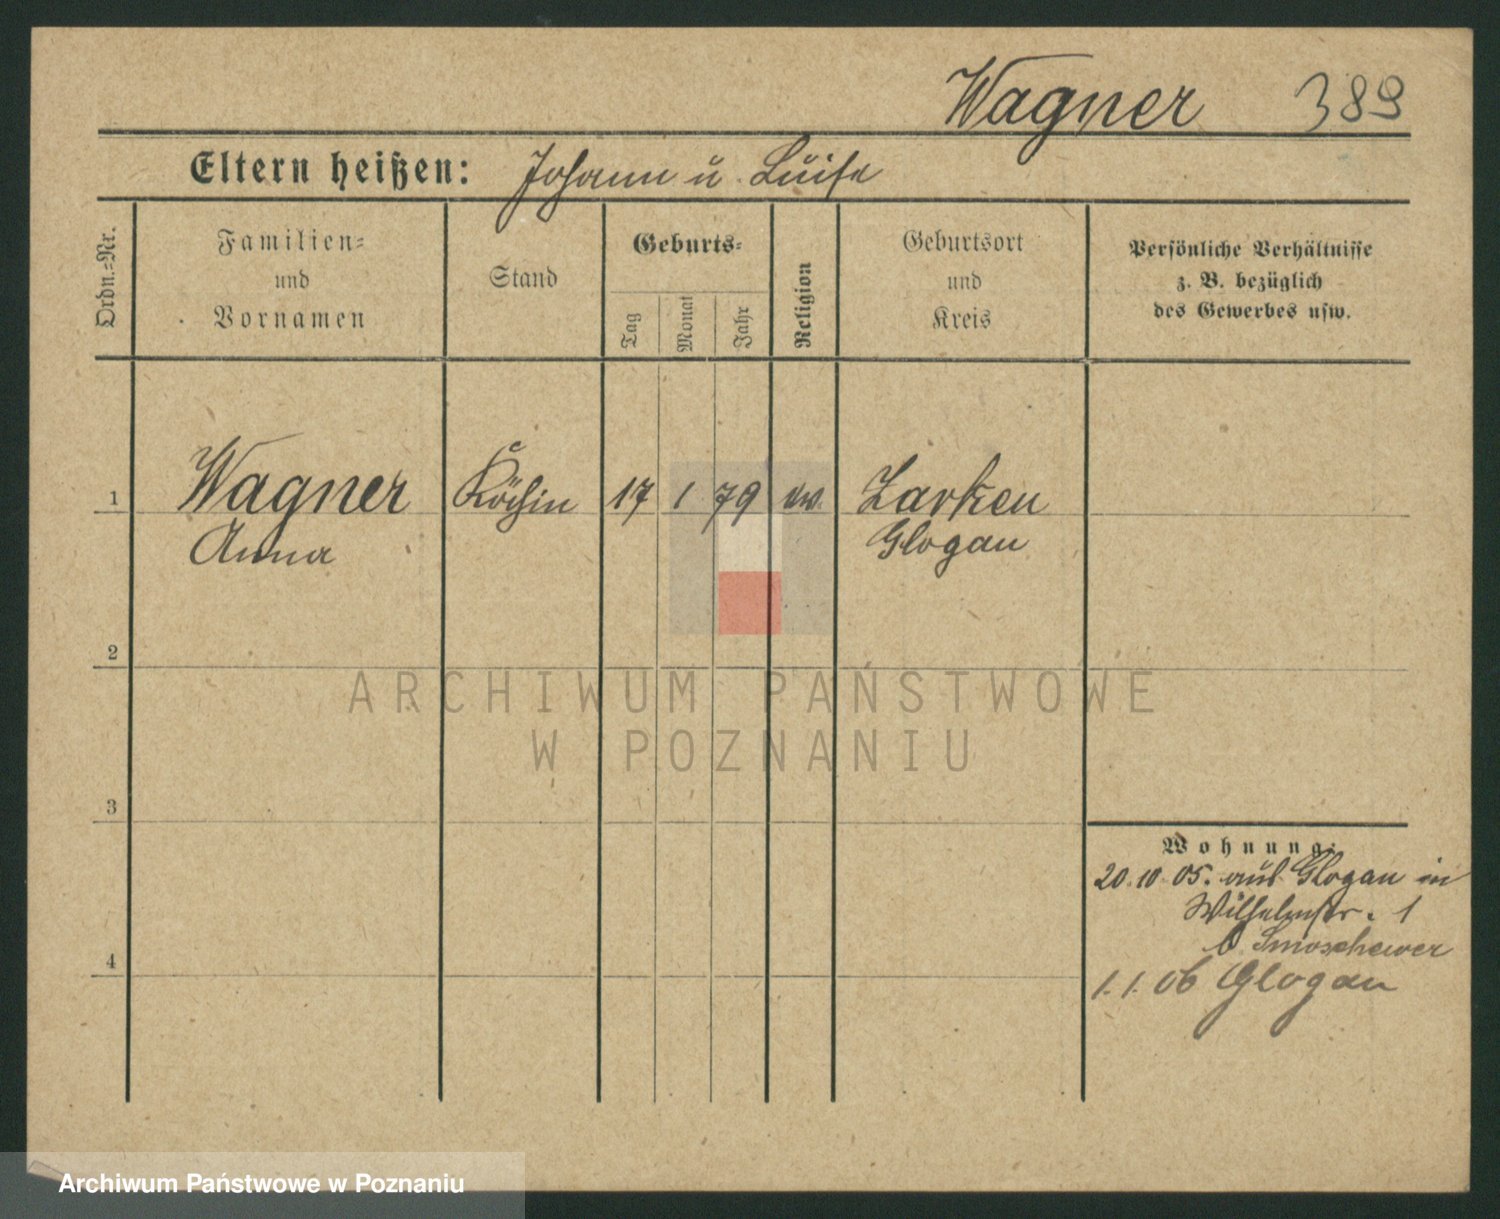 Wagner 389
Eltern heißen: Johann u Luise
Ordn.-Nr.
Familien-
und
Vornamen
Stand
Geburts-
Tag
Monat
Jahr
Religion
Geburtsort
und
Kreis
Persönliche Verhältnisse
z. B. bezüglich
des Gewerbes usw.
1 Wagner Köchin 17 1 79 ev. Zarkau
Anna Glogau
2
3
4
Wohnung:
20.10.05. aus Glogau in
Wilhelmstr. 1
b. Smoschewer
1.1.06 Glogau
ARCHIWUM PAŃSTWOWE
W POZNANIU
Archiwum Państwowe w Poznaniu